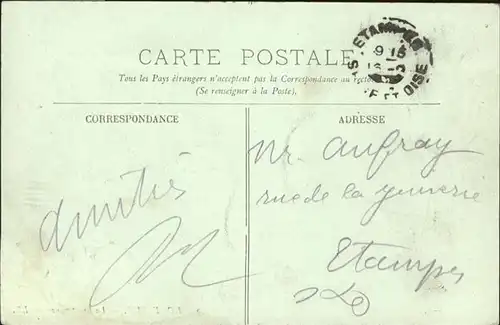 CARTE POSTALE
Tous les Pays étrangers n'acceptent pas la Correspondance au recto
(Se renseigner à la Poste).
ETAMPES
ET OISE
CORRESPONDANCE
ADRESSE
Amitiés
Mr. Aufray
rue de la
Etampes